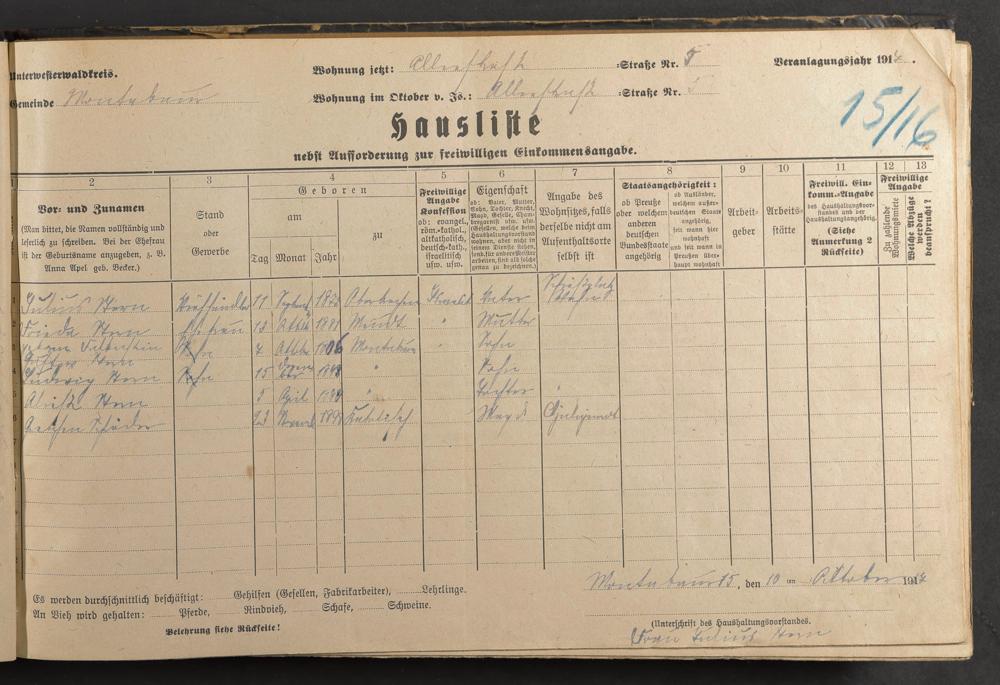 Unterwesterwaldkreis.
Gemeinde Montabaur
Wohnung jetzt: Alleestraße =Straße Nr. 5
Wohnung im Oktober v. Js.: Alleestraße =Straße Nr. 5
Veranlagungsjahr 191
15/16
Hausliste
nebst Aufforderung zur freiwilligen Einkommensangabe.
1 2 3 4 5 6 7 8 9 10 11 12 13
Vor- und Zunamen
(Man bittet, die Namen vollständig und
leserlich zu schreiben. Bei der Ehefrau
ist der Geburtsname anzugeben, z. B.
Anna Apel geb. Becker.)
Stand
oder
Gewerbe
Geboren
am
zu
Tag Monat Jahr
Freiwillige
Angabe
Konfession
ob: evangel.
röm.-kathol.,
altkatholisch,
deutsch-kath.,
israelitisch
usw. usw.
Eigenschaft
ob: Vater, Mutter,
Sohn, Tochter, Knecht,
Magd, Geselle, Cham-
bregarnist usw. usw.
(Gesellen, welche beim
Haushaltungsvorstand
wohnen, aber nicht in
seinem Dienste stehen,
sond. für andere Meister
arbeiten, sind als solche
genau zu bezeichnen.)
Angabe des
Wohnsitzes, falls
derselbe nicht am
Aufenthaltsorte
selbst ist
Staatsangehörigkeit:
ob Preuße
oder welchem
anderen
deutschen
Bundesstaate
angehörig
ob Ausländer,
welchem außer-
deutschen Staate
angehörig,
seit wann hier
wohnhaft
und
seit wann in
Preußen über-
haupt wohnhaft
Arbeit-
geber
Arbeits-
stätte
Freiwill. Ein-
komm.-Angabe
des Haushaltungsvor-
standes und der
Haushaltungsangehörig.
(Siehe
Anmerkung 2
Rückseite)
Freiwillige
Angabe
Zu zahlende
Wohnungsmiete
Welche Abzüge
werden
beansprucht?
Julius Stern 11 18 Vater
Frieda Stern 1881 Mutter
Sohn 7 Oktbr 1906 Montabaur " Sohn
Ludwig Stern Sohn 15 " Sohn
Stern 5 April " Tochter
Schröder 22 Magd
Es werden durchschnittlich beschäftigt: Gehilfen (Gesellen, Fabrikarbeiter), Lehrlinge.
An Vieh wird gehalten: Pferde, Rindvieh, Schafe, Schweine.
Belehrung siehe Rückseite!
Montabaur, den 10 ten Oktober 191
(Unterschrift des Haushaltungsvorstandes.
Frau Julius Stern